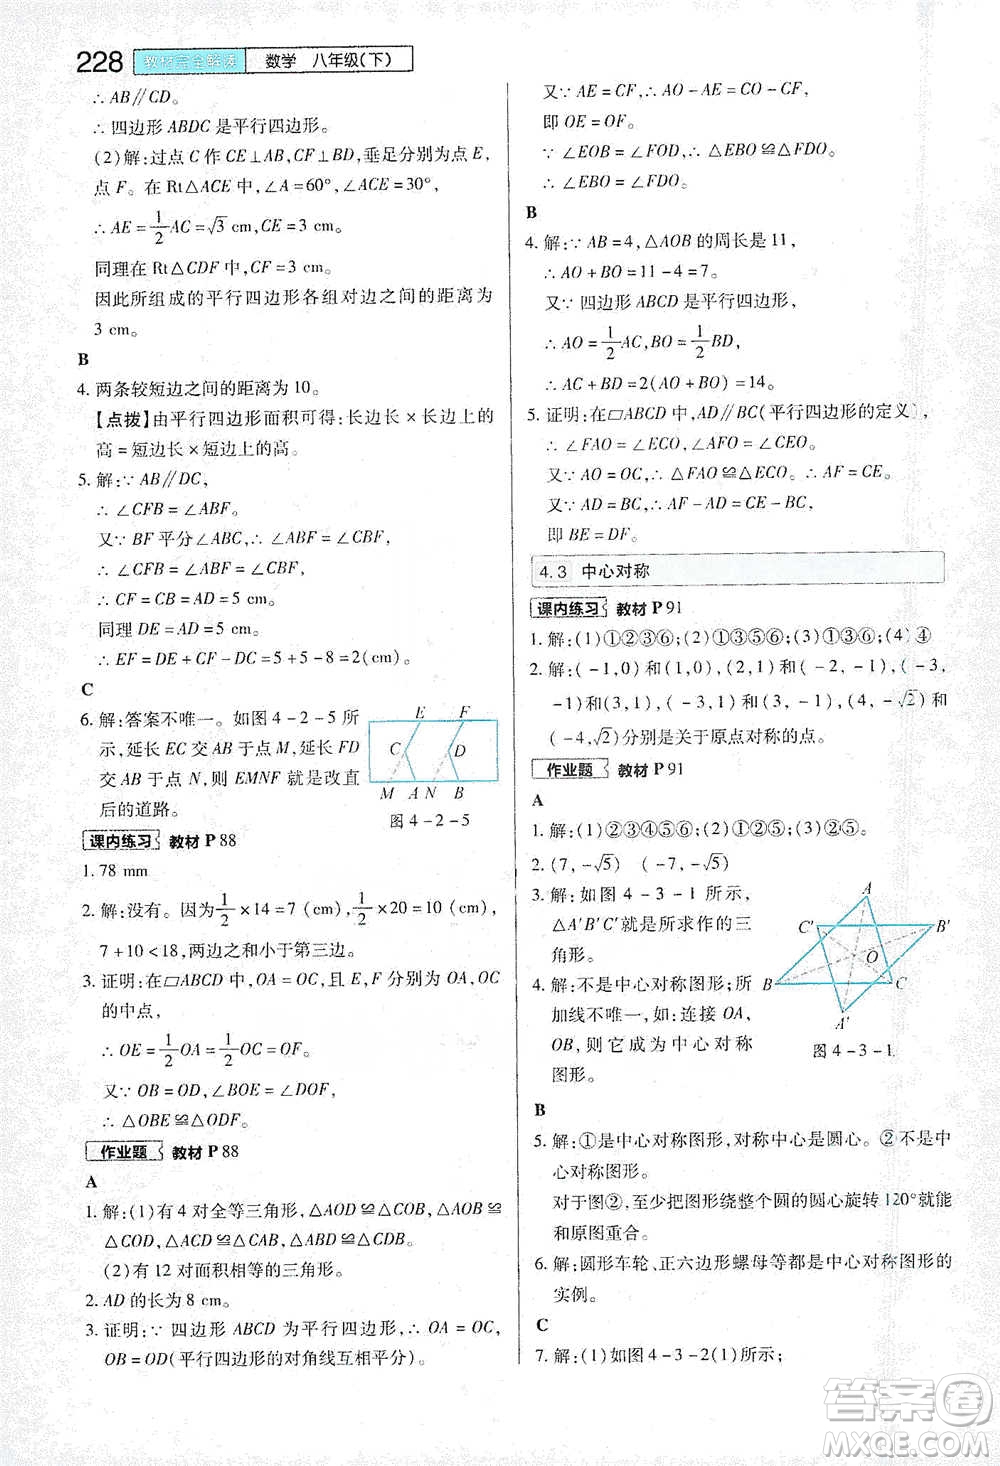 228 教材完全解读 数学 八年级(下)
∴ AB∥CD。
∴ 四边形 ABDC 是平行四边形。
(2)解:过点 C 作 CE⊥AB,CF⊥BD,垂足分别为点 E,
点 F。在 Rt△ACE 中,∠A=60°,∠ACE=30°,
∴ AE=1/2AC=√3 cm,CE=3 cm。
同理在 Rt△CDF 中,CF=3 cm。
因此所组成的平行四边形各组对边之间的距离为
3 cm。
B
4. 两条较短边之间的距离为 10。
【点拨】由平行四边形面积可得:长边长×长边上的
高=短边长×短边上的高。
5. 解:∵ AB∥DC,
∴ ∠CFB=∠ABF。
又∵ BF 平分∠ABC,∴ ∠ABF=∠CBF,
∴ ∠CFB=∠CBF,
∴ CF=CB=AD=5 cm。
同理 DE=AD=5 cm。
∴ EF=DE+CF-DC=5+5-8=2(cm)。
C
6. 解:答案不唯一。如图 4-2-5 所
示,延长 EC 交 AB 于点 M,延长 FD
交 AB 于点 N,则 EMNF 就是改直
后的道路。
E F
C D
M A N B
图 4-2-5
课内练习 教材 P 88
1. 78 mm
2. 解:没有。因为1/2×14=7 (cm),1/2×20=10 (cm),
7+10<18,两边之和小于第三边。
3. 证明:在▱ABCD 中,OA=OC,且 E,F 分别为 OA,OC
的中点,
∴ OE=1/2OA=1/2OC=OF。
又∵ OB=OD,∠BOE=∠DOF,
∴ △OBE≌△ODF。
作业题 教材 P 88
A
1. 解:(1)有 4 对全等三角形,△AOD≌△COB,△AOB≌
△COD,△ABD≌△CDB,△ABC≌△CDA。
(2)有 12 对面积相等的三角形。
2. AD 的长为 8 cm。
3. 证明:∵ 四边形 ABCD 为平行四边形,∴ OA=OC,
OB=OD(平行四边形的对角线互相平分)。
又∵ AE=CF,∴ AO-AE=CO-CF,
即 OE=OF。
∵ ∠EOB=∠FOD,∴ △EBO≌△FDO。
∴ ∠EBO=∠FDO。
B
4. 解:∵ AB=4,△AOB 的周长是 11,
∴ AO+BO=11-4=7。
又∵ 四边形 ABCD 是平行四边形,
∴ AO=1/2AC,BO=1/2BD,
∴ AC+BD=2(AO+BO)=14。
5. 证明:在▱ABCD 中,AD∥BC(平行四边形的定义),
∴ ∠FAO=∠ECO,∠AFO=∠CEO。
又∵ AO=OC,∴ △FAO≌△ECO。∴ AF=CE。
又∵ AD=BC,∴ AF-AD=CE-BC,
即 BE=DF。
4.3 中心对称
课内练习 教材 P 91
1. 解:(1)①②③⑥;(2)①②③⑥;(3)①③⑤;(4)④
2. 解:(-1,0)和(1,0),(2,1)和(-2,-1),(-3,
-1)和(3,1),(-3,1)和(3,-1),(4,-√2)和
(-4,√2)分别是关于原点对称的点。
作业题 教材 P 91
A
1. 解:(1)②③④⑤;(2)①②⑤;(3)②⑤。
2. (7,-√5) (-7,-√5)
3. 解:如图 4-3-1 所示,
△A'B'C'就是所求作的三
角形。
4. 解:不是中心对称图形;所
加线不唯一,如:连接 OA,
OB,则它成为中心对称
图形。
A
C' B'
O
B C
A'
图 4-3-1
B
5. 解:①是中心对称图形,对称中心是圆心。②不是中
心对称图形。
对于图②,至少把图形绕整个圆的圆心旋转 120°就能
和原图重合。
6. 解:圆形车轮、正六边形螺母等都是中心对称图形的
实例。
C
7. 解:(1)如图 4-3-2(1)所示;
答案圈
MXQE.COM